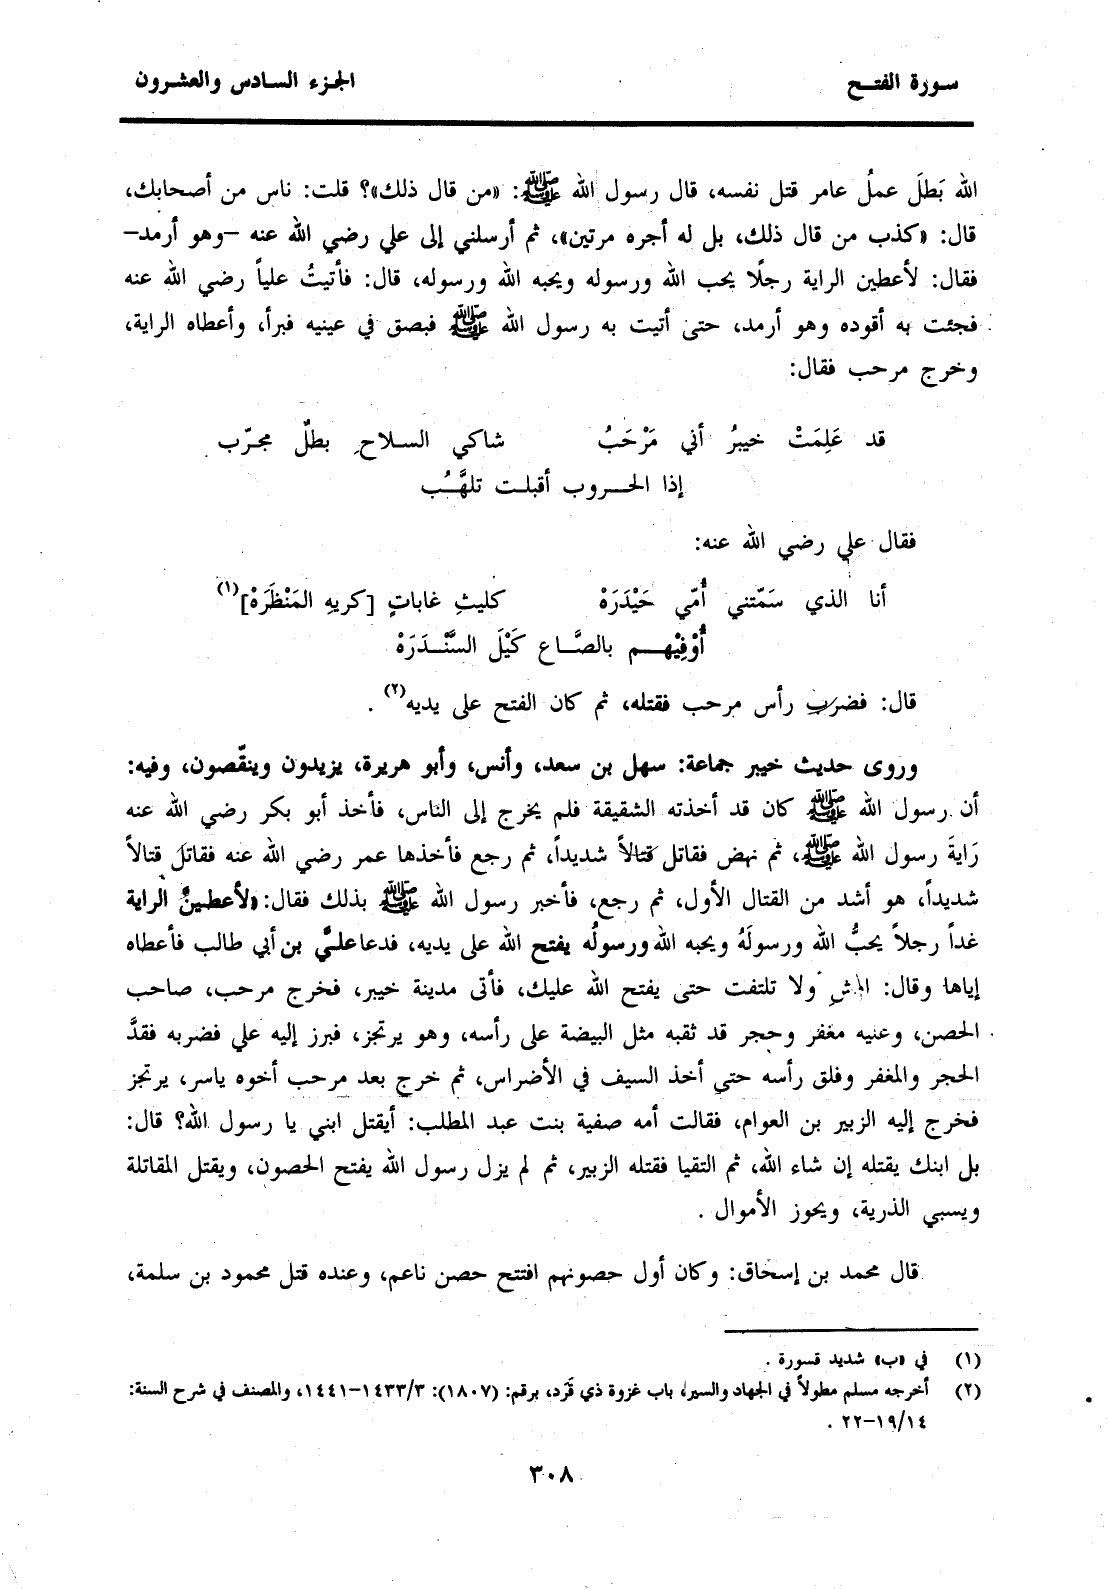 سورة الفتح
الجزء السادس والعشرون
الله بَطلَ عملُ عامر قتل نفسه، قال رسول الله ﷺ: «من قال ذلك»؟ قلت: ناس من أصحابك،
قال: «كذب من قال ذلك، بل له أجره مرتين»، ثم أرسلني إلى علي رضي الله عنه –وهو أرمد–
فقال: لأعطين الراية رجلًا يحب الله ورسوله ويحبه الله ورسوله، قال: فأتيتُ علياً رضي الله عنه
فجئت به أقوده وهو أرمد، حتى أتيت به رسول الله ﷺ فبصق في عينيه فبرأ، وأعطاه الراية،
وخرج مرحب فقال:
قد عَلِمَتْ خيبرُ أني مَرْحَبُ شاكي السلاحِ بطلٌ مجرّب
إذا الحروب أقبلت تلهَّبُ
فقال علي رضي الله عنه:
أنا الذي سَمّتني أُمّي حَيْدَرَهْ كليثِ غاباتٍ [كريهِ المَنْظَرَهْ](١)
أُوْفِيْهم بالصَّاع كَيْلَ السَّنْدَرَهْ
قال: فضرب رأس مرحب فقتله، ثم كان الفتح على يديه(٢) .
وروى حديث خيبر جماعة: سهل بن سعد، وأنس، وأبو هريرة، يزيدون وينقّصون، وفيه:
أن رسول الله ﷺ كان قد أخذته الشقيقة فلم يخرج إلى الناس، فأخذ أبو بكر رضي الله عنه
رَايةَ رسول الله ﷺ، ثم نهض فقاتل قتالاً شديداً، ثم رجع فأخذها عمر رضي الله عنه فقاتل قتالاً
شديداً، هو أشد من القتال الأول، ثم رجع، فأخبر رسول الله ﷺ بذلك فقال: «لأعطينَّ الراية
غداً رجلاً يحبُّ الله ورسولَهُ ويحبه الله ورسولُه يفتح الله على يديه، فدعا عليَّ بن أبي طالب فأعطاه
إياها وقال: امْشِ ولا تلتفت حتى يفتح الله عليك، فأتى مدينة خيبر، فخرج مرحب، صاحب
الحصن، وعليه مغفر وحجر قد ثقبه مثل البيضة على رأسه، وهو يرتجز، فبرز إليه علي فضربه فقدَّ
الحجر والمغفر وفلق رأسه حتى أخذ السيف في الأضراس، ثم خرج بعد مرحب أخوه ياسر، يرتجز
فخرج إليه الزبير بن العوام، فقالت أمه صفية بنت عبد المطلب: أيقتل ابني يا رسول الله؟ قال:
بل ابنك يقتله إن شاء الله، ثم التقيا فقتله الزبير، ثم لم يزل رسول الله يفتح الحصون، ويقتل المقاتلة
ويسبي الذرية، ويحوز الأموال .
قال محمد بن إسحاق: وكان أول حصونهم افتتح حصن ناعم، وعنده قتل محمود بن سلمة،
(١) في «ب» شديد قسورة .
(٢) أخرجه مسلم مطولاً في الجهاد والسير، باب غزوة ذي قَرَد، برقم: (١٨٠٧): ١٤٣٣/٣–١٤٤١، والمصنف في شرح السنة:
١٩/١٤–٢٢ .
٣٠٨